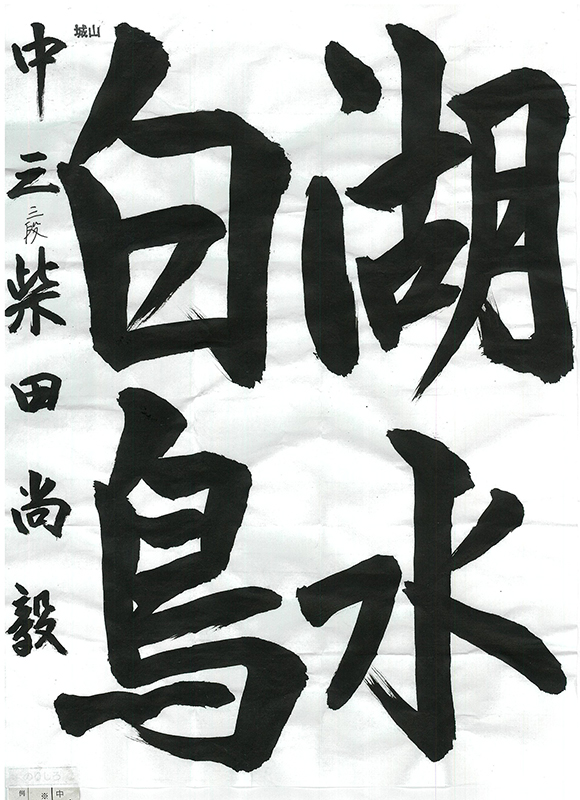 湖水
白鳥
城山
中三 三段 柴田尚毅
例 ※ 中